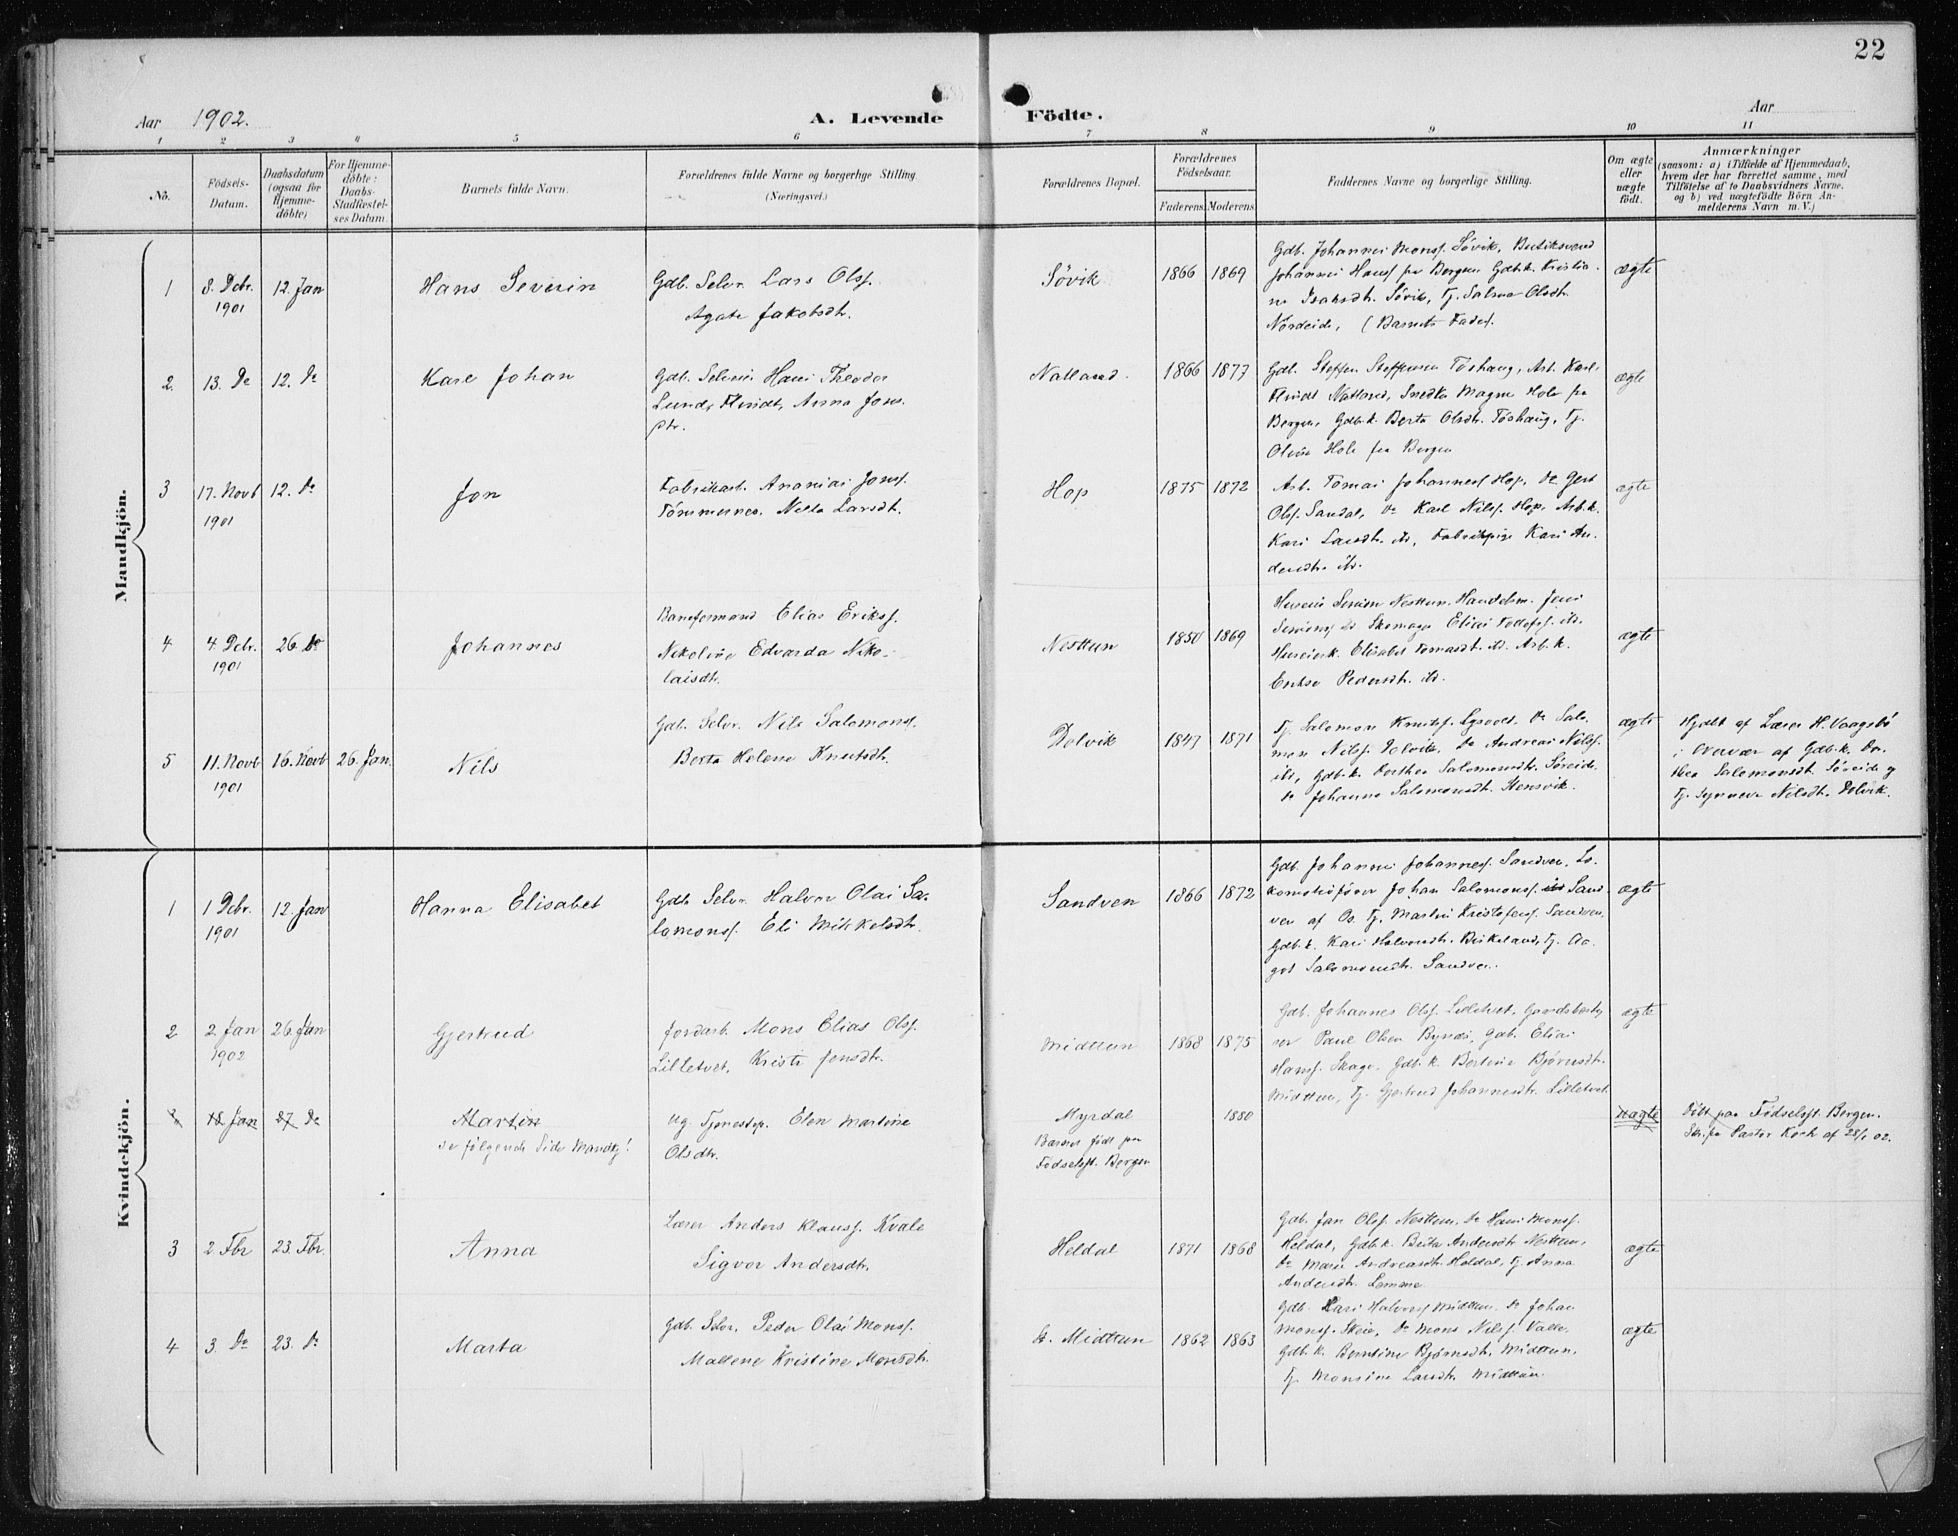 22
Aar 1902.
A. Levende Födte.
Aar
1 2 3 4 5 6 7 8 9 10 11
No.
Födsels-
Datum.
Daabsdatum
(ogsaa for
Hjemme-
döbte)
For Hjemme-
döbte:
Daabs-
Stadfæstel-
ses Datum.
Barnets fulde Navn.
Forældrenes fulde Navne og borgerlige Stilling.
(Næringsvei.)
Forældrenes Bopæl.
Forældrenes
Födselsaar.
Faderens. Moderens.
Faddernes Navne og borgerlige Stilling.
Om ægte
eller
uægte
födt.
Anmærkninger
(saasom: a) i Tilfælde af Hjemmedaab,
hvem der har forrettet samme, med
Tilföielse af to Daabsvidners Navne,
og b) ved uægtefödte Börn An-
melderens Navn m. V.)
Mandkjön.
1
8. Debr.
1901
12. Jan
Hans Severin
Gdb. Selvr. Lars Olsf.
Agate Jakobsdtr.
Søvik
1866 1869
Gdb. Johannes Monsf. Søvik, Butiksvend
Johannes Hansf fra Bergen Gdb.k. Kristia-
ne Isaksdtr. Søvik, Tj. Salma Olsdtr.
Nordeide, (Barnets Fader.
ægte
2.
13. Do
12. Do
Karl Johan
Gdb. Selveier Hans Theodor
Lund, Anna Jons-
dtr.
Natland.
1866 1877
Gdb. Steffen Steffensen Töshaug, Arb. Karl
Natland, Snedker Magnus Hole fra
Bergen, Gdb.k. Berta Olsdtr. Töshaug, Tj.
Hole fra Bergen
ægte
3
17. Novb
1901
12. Do
Jon
Fabrikarb. Ananias Jonsf.
Tömmernes, Nelle Larsdtr.
Hop
1875 1872
Arb. Tomas Johannesf Hop, Do Gert
Olsf. Sandal, Do Karl Nilsf. Hop, Arb.k.
Kari Larsdtr. ib, Fabrikpige Kari An-
dersdtr. ib.
ægte
4
4. Debr.
1901
26. Do
Johannes
Baneformand Elias Eriksf.
Nikoline Edvarda Niko-
laisdtr.
Nesttun
1850 1869
Nesttun. Handelsm. Jens
ib Skomager Elias ib.
Elisabet Tomasdtr. ib. Arb.k.
Pedersdtr. ib.
ægte
5
11. Novb
1901
16. Novb
26. Jan.
Nils
Gdb. Selvr. Nils Salomonsf.
Berta Helene Knutsdtr.
Dolvik
1847 1871
Tj. Salomon Knutsf. Do Salo-
mon Nilsf. Dolvik, Do Andreas Nilsf.
ib, Gdb.k. Dorthea Salomonsdtr. Søreide
Do Johanna Salomonsdtr. Stensvik.
ægte
Hjdbt af Lærer H. Vaagsbö
i Overvær af Gdb.k. Do-
thea Salomonsdtr. Søreide og
Tj. Synneve Nilsdtr. Dolvik.
Kvindekjön.
1
1 Debr.
1901
12. Jan
Hanna Elisabet
Gdb Selvr. Halvor Olai Sa-
lomonsf. Eli Mikkelsdtr.
Sandven
1866 1872
Gdb. Johannes Johannesf. Sandven, Lo-
komotivförer Johan Salomonsf. ib Sand-
ven af Os. Tj. Martin Kristofersf. Sandven,
Gdb.k. Kari Halvorsdtr. Birkeland, Tj. Aa-
got Salomonsdtr. Sandven.
ægte
2
2. Jan
1902
26. Jan
Gjertrud
Jordarb. Mons Elias Olsf.
Lilletvet, Kristi Jonsdtr.
Midttun
1868 1875
Gdb. Johannes Olsf. Lilletvet, Gaardsbesty-
rer Paul Olsen Bynæs, Gdb. Elias
Hansf. Skage. Gdb.k. Bertine Bjørnsdtr.
Midttun, Tj. Gjertrud Johannesdtr. Lilletvet.
ægte
3 18 Jan 27 Do
Martin
se følgende Side Mandkj!
ug. Tjenestep. Elen Martine
Olsdtr.
Myrdal
Barnet født paa
Födselsst. Bergen
1880
uægte
Döbt paa Födselsst. Bergen.
Skr. fra Pastor Koch af 28/1 02.
3
2. Fbr
23. Fbr.
Anna
Lærer Anders Klausf. Kvale
Sigvor Andersdtr.
Heldal
1871 1868
Gdb. Jan Olsf. Nesttun, Do Hans Monsf.
Heldal, Gdb.k. Brita Andersdtr. Nesttun,
Do Marie Andreasdtr. Heldal, Tj. Anna
Andersdtr. Lemme
ægte
4
3. Do
23. Do
Marta
Gdb. Selvr. Peder Olai Monsf.
Mallene Kristine Monsdtr.
St. Midttun
1862 1863
Gdb. Lars Halvorsf Midttun. Do Johan
Monsf. Skeie, Do Mons Nilsf. Valle,
Gdb.k. Berntine Bjørnsdtr. Midttun,
Tj. Monsine Larsdtr. Midttun.
ægte